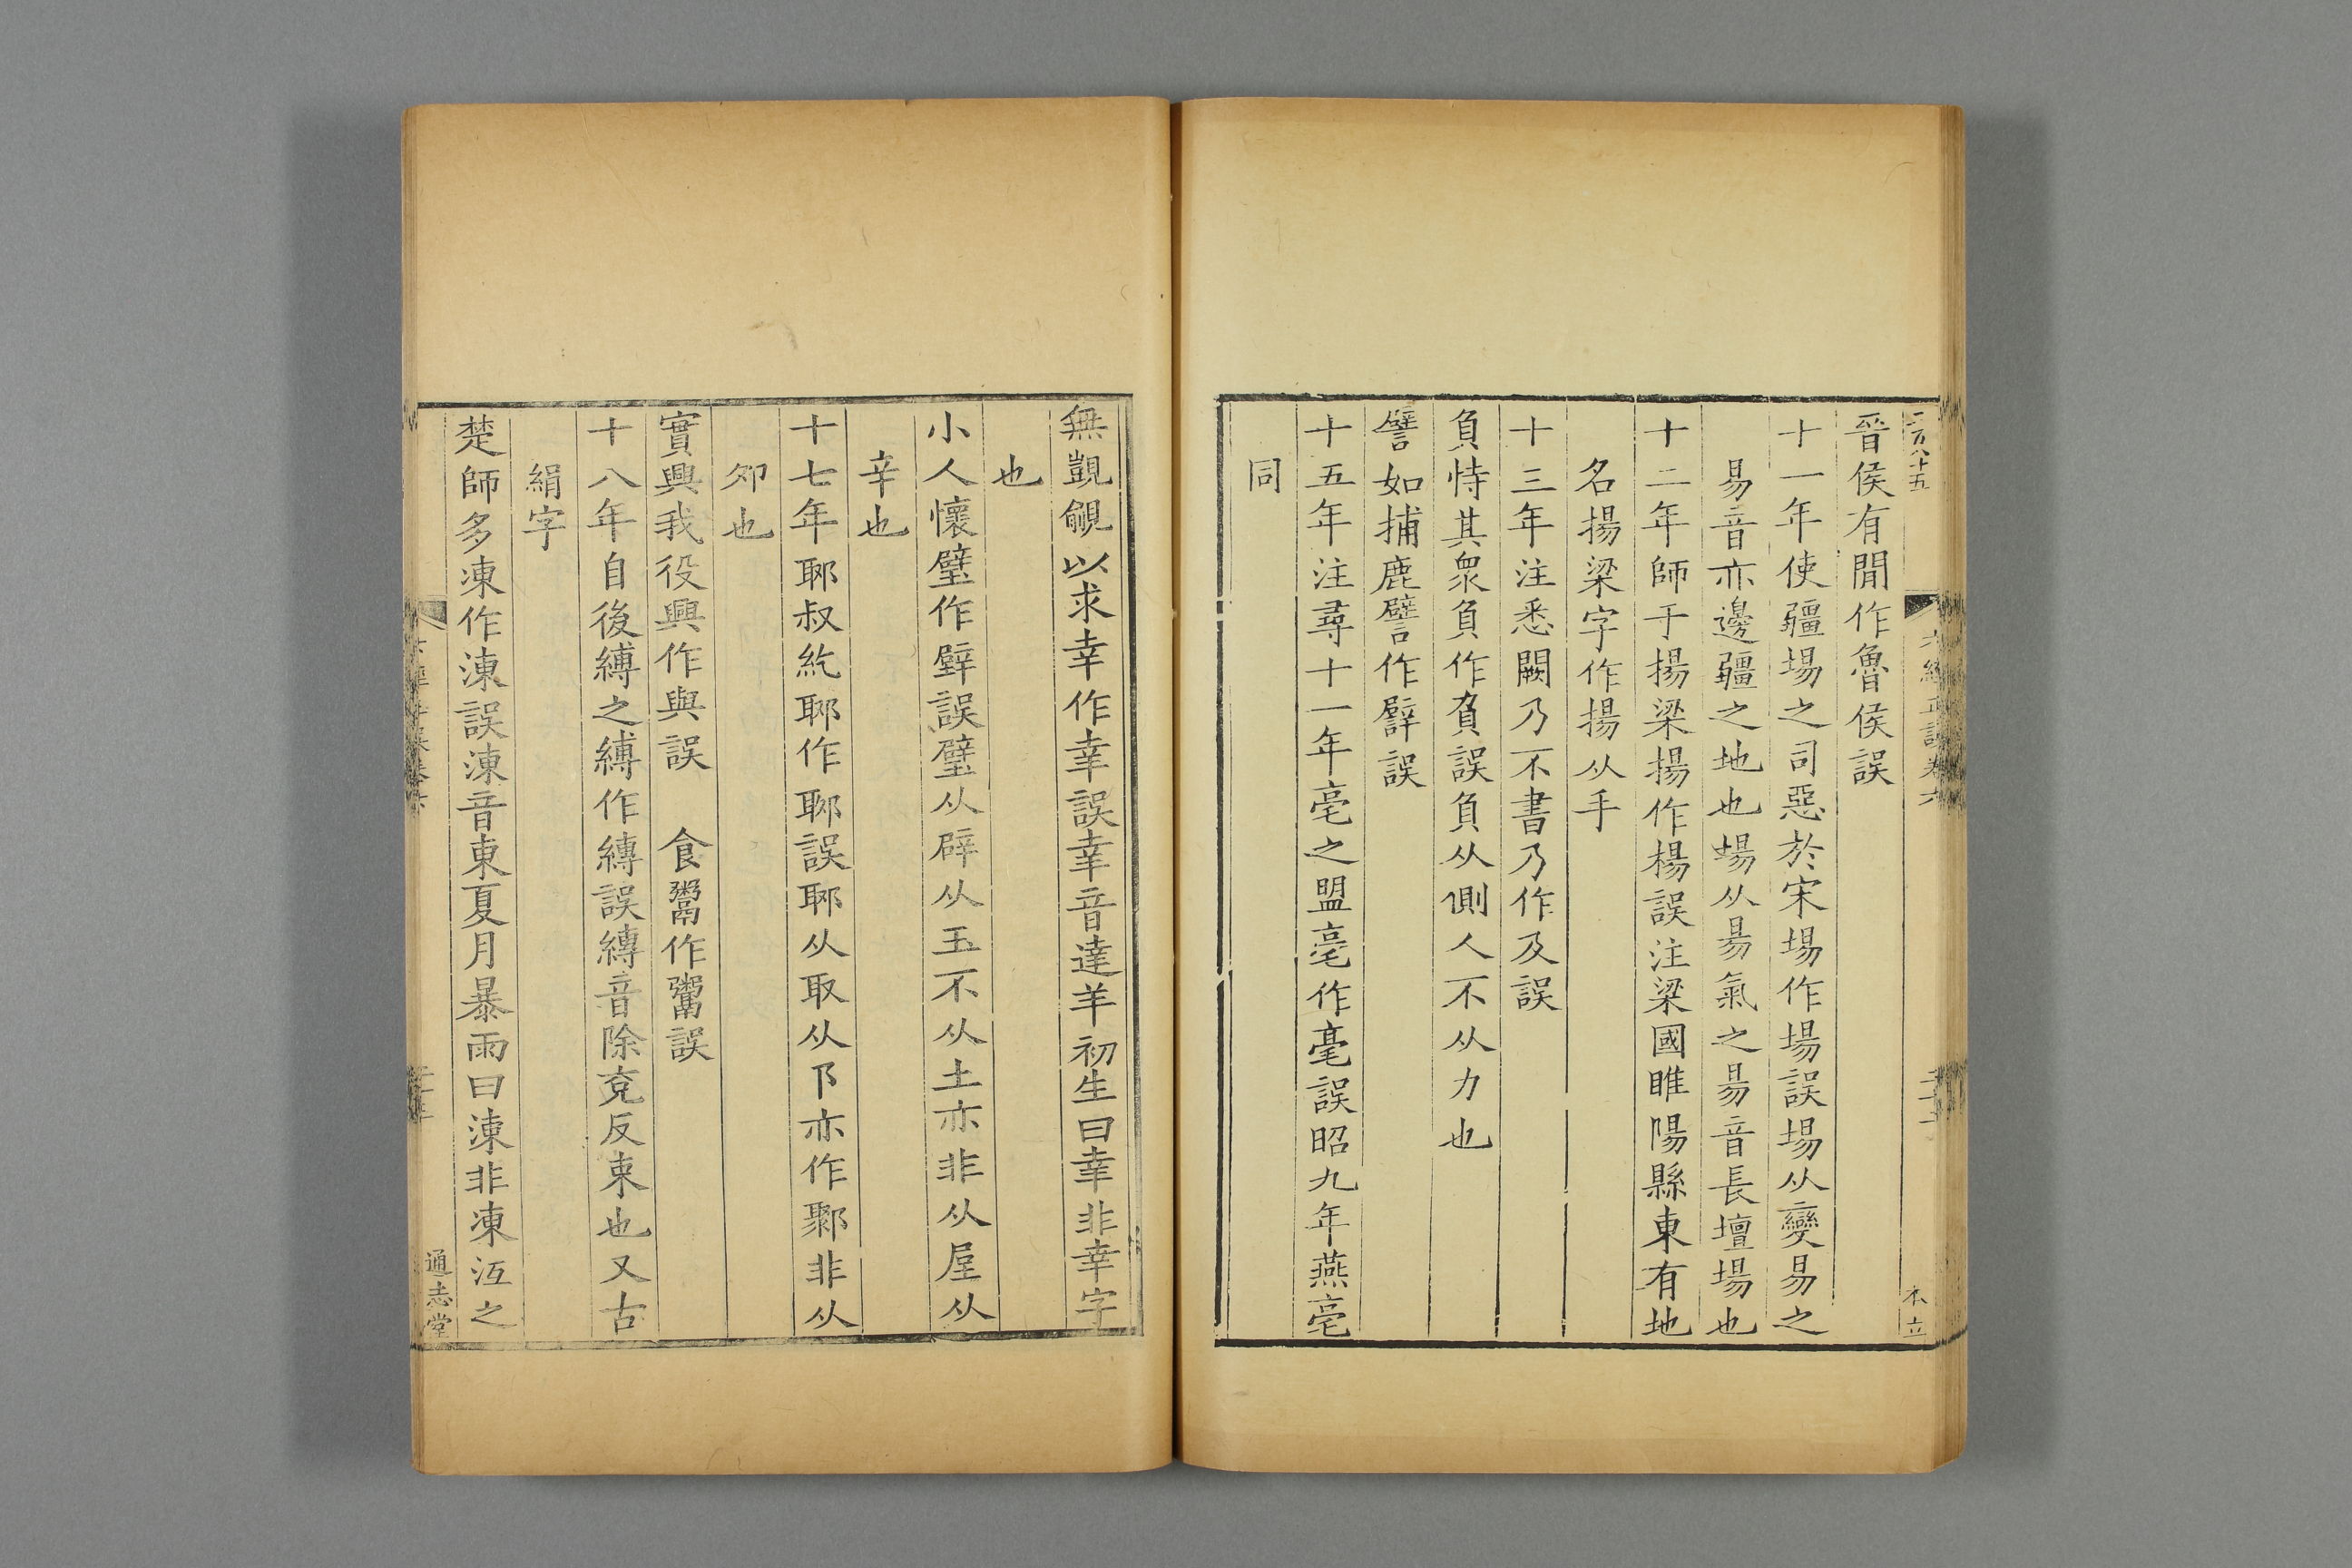 二百八十五
六經正誤卷六
本立
晉侯有閒作魯侯誤
十一年使疆埸之司惡於宋埸作場誤埸从變易之
易音亦邊疆之地也場从昜氣之昜音長壇場也
十二年師于揚梁揚作楊誤注梁國睢陽縣東有地
名揚梁字作揚从手
十三年注悉闕乃不書乃作及誤
負恃其衆負作負誤負从側人不从力也
譬如捕鹿譬作嬖誤
十五年注尋十一年亳之盟亳作毫誤昭九年燕亳
同
無覬覦以求幸作幸誤幸音達羊初生曰幸非幸字
也
小人懷璧作壁誤璧从辟从玉不从土亦非从屋从
辛也
十七年郰叔紇郰作郰誤郰从取从阝亦作鄹非从
卯也
實興我役興作與誤　食鬻作鬻誤
十八年自後縛之縛作縳誤縳音除兗反束也又古
絹字
楚師多凍作涷誤涷音東夏月暴雨曰涷非凍沍之
通志堂